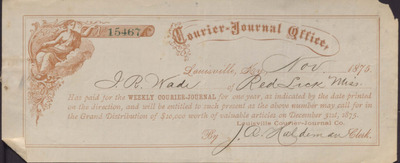 15467
Courier-Journal Office,
Louisville, Ky. Nov 1875
J. R. Wade of Red Lick Miss.
Has paid for the WEEKLY COURIER-JOURNAL for one year, as indicated by the date printed
on the direction, and will be entitled to such present at the above number may call for in
the Grand Distribution of $10,000 worth of valuable articles on December 31st, 1875.
Louisville Courier-Journal Co.
By J. A. Haldeman Clerk.